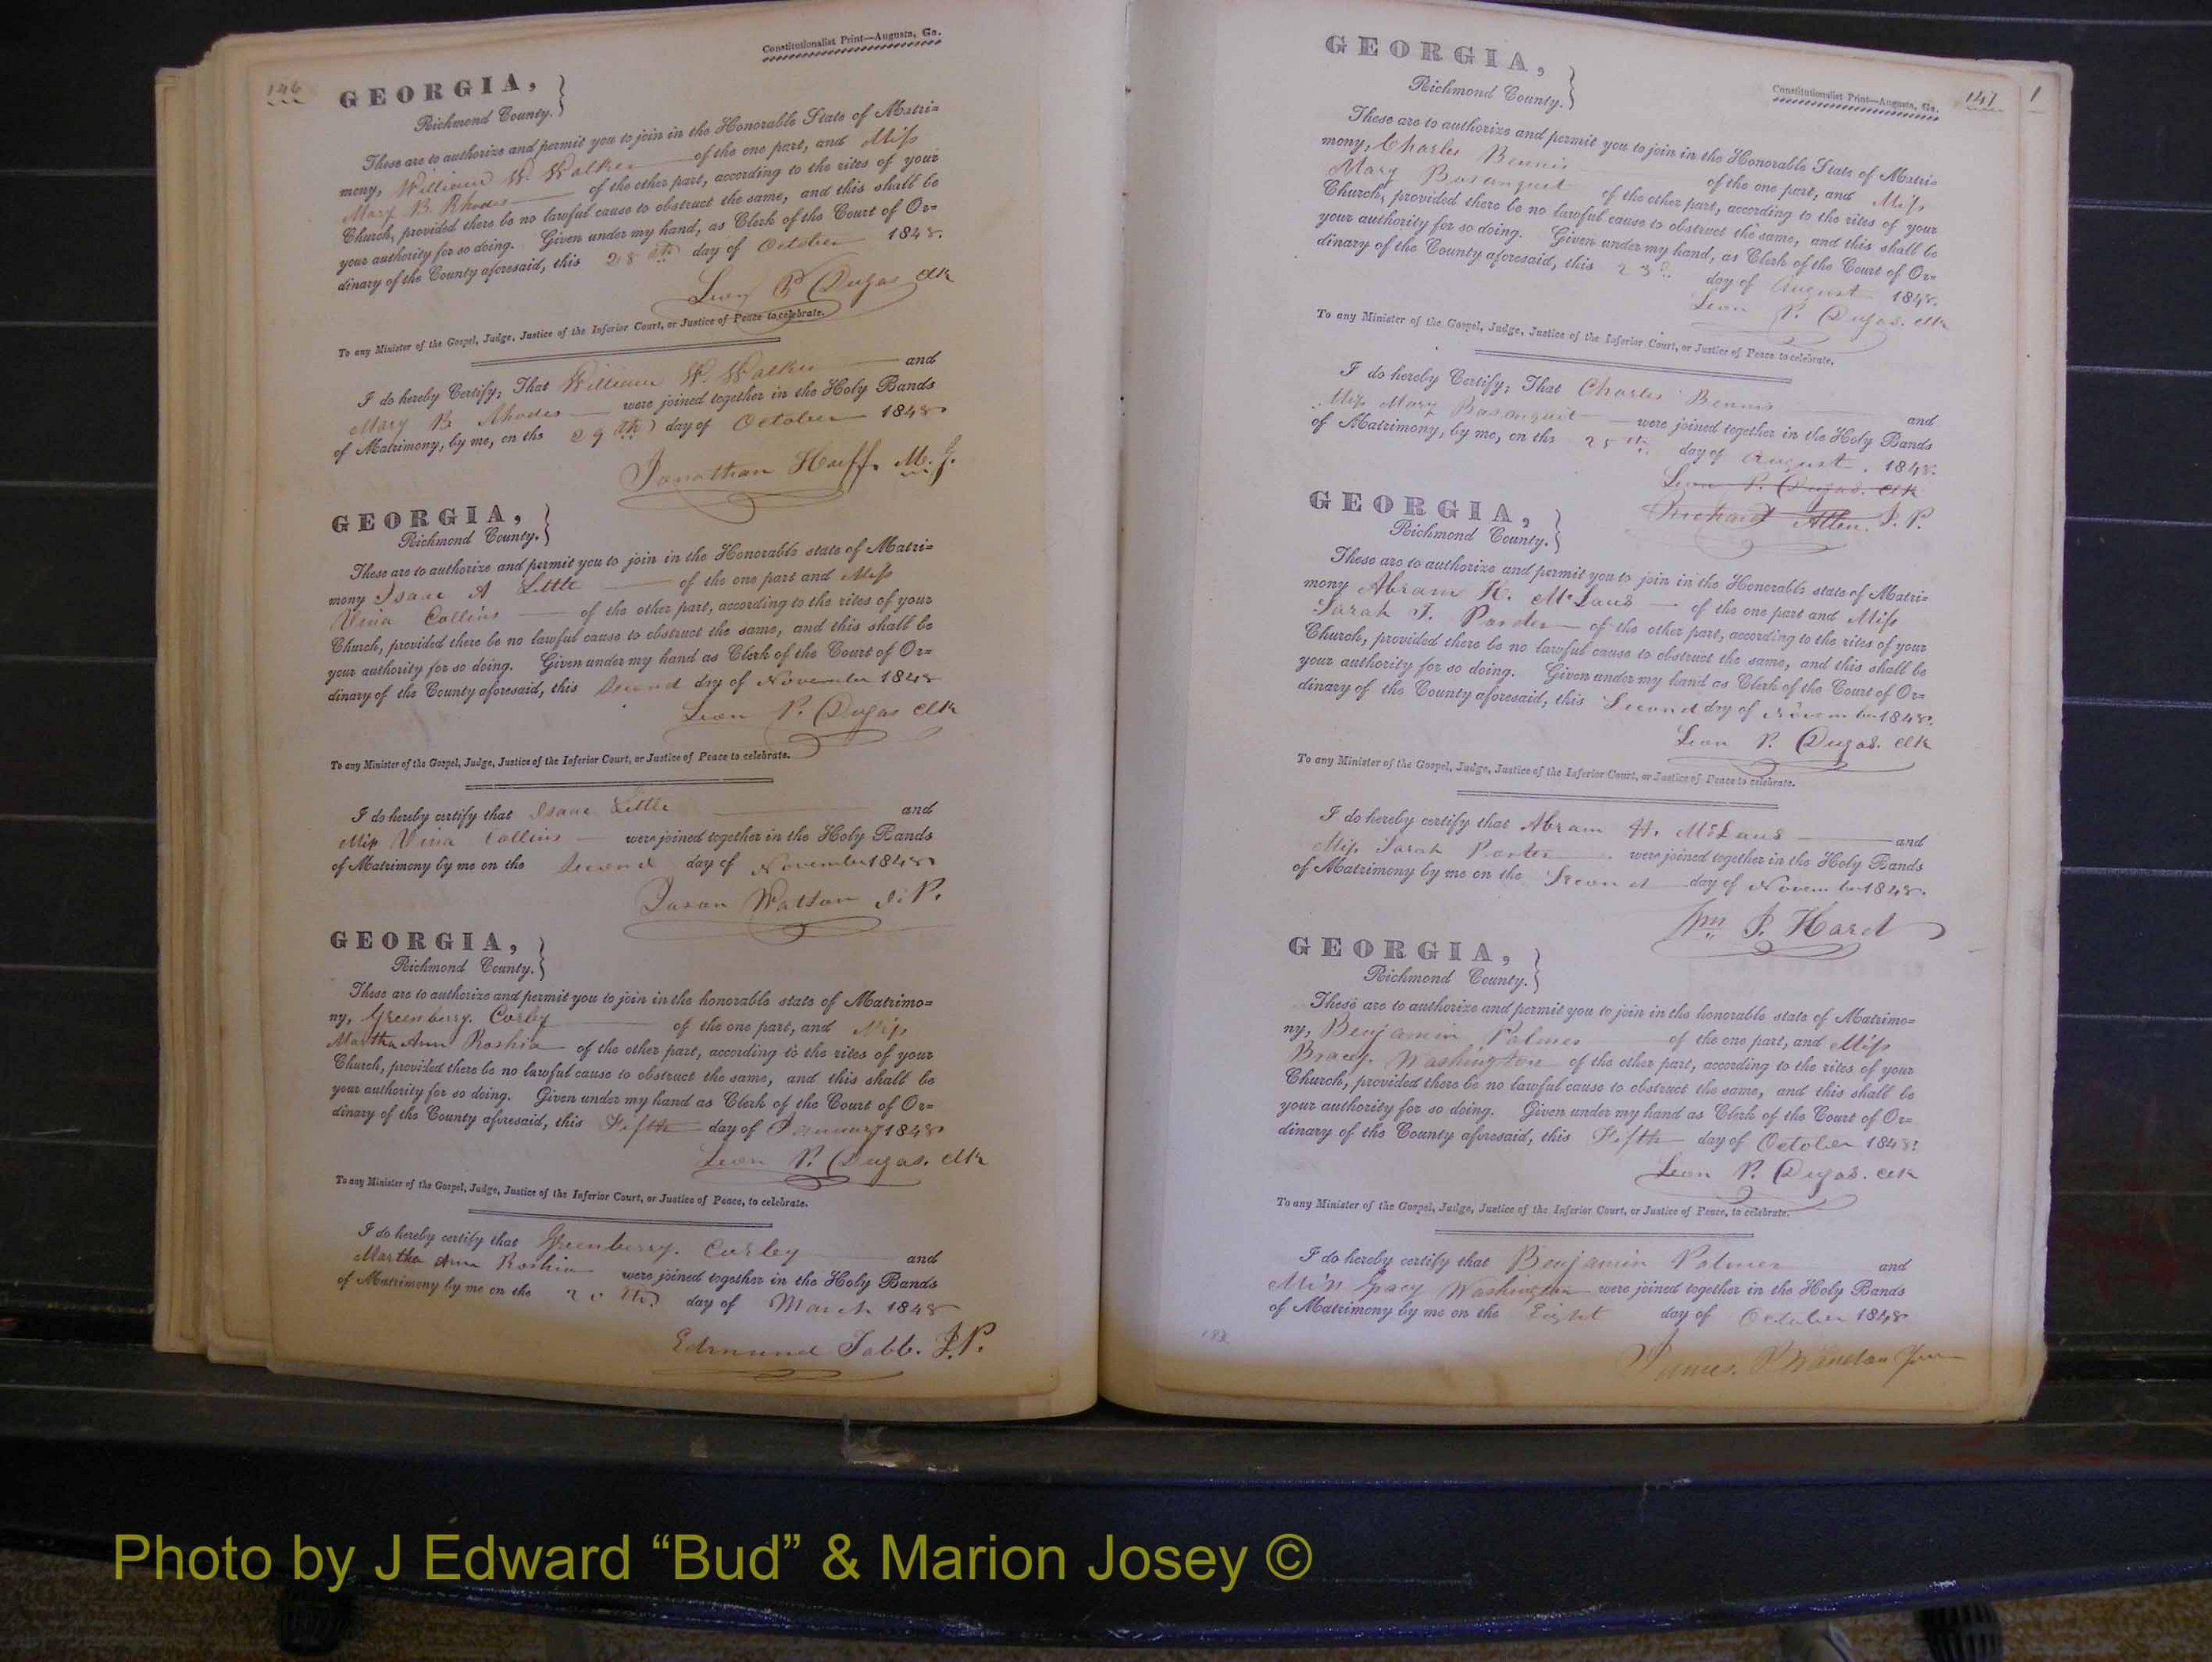 146
Constitutionalist Print—Augusta, Ga.
GEORGIA,
Richmond County.
These are to authorize and permit you to join in the Honorable State of Matri=
mony, William W. Walker of the one part, and Miss
Mary B. Rhodes of the other part, according to the rites of your
Church, provided there be no lawful cause to obstruct the same, and this shall be
your authority for so doing. Given under my hand, as Clerk of the Court of Or=
dinary of the County aforesaid, this 28th day of October 1848.
Leon P. Dugas Clk
To any Minister of the Gospel, Judge, Justice of the Inferior Court, or Justice of Peace to celebrate.
I do hereby Certify; That William W. Walker and
Mary B. Rhodes were joined together in the Holy Bands
of Matrimony, by me, on the 29th day of October 1848
Jonathan Huff. M. G.
GEORGIA,
Richmond County.
These are to authorize and permit you to join in the Honorable state of Matri=
mony Isaac A Little of the one part and Miss
Vina Collins of the other part, according to the rites of your
Church, provided there be no lawful cause to obstruct the same, and this shall be
your authority for so doing. Given under my hand as Clerk of the Court of Or=
dinary of the County aforesaid, this Second dry of November 1848
Leon P. Dugas Clk
To any Minister of the Gospel, Judge, Justice of the Inferior Court, or Justice of Peace to celebrate.
I do hereby certify that Isaac Little and
Miss Vina Collins were joined together in the Holy Bands
of Matrimony by me on the Second day of November 1848
Jason Watson J. P.
GEORGIA,
Richmond County.
These are to authorize and permit you to join in the honorable state of Matrimo=
ny, Greenberry. Corley of the one part, and Miss
Martha Ann Roshia of the other part, according to the rites of your
Church, provided there be no lawful cause to obstruct the same, and this shall be
your authority for so doing. Given under my hand as Clerk of the Court of Or=
dinary of the County aforesaid, this Fifth day of January 1848
Leon P. Dugas. Clk
To any Minister of the Gospel, Judge, Justice of the Inferior Court, or Justice of Peace, to celebrate.
I do hereby certify that Greenberry. Corley and
Martha Ann Roshia were joined together in the Holy Bands
of Matrimony by me on the 20th day of March 1848
Edmund Tabb. J.P.
GEORGIA,
Richmond County.
Constitutionalist Print—Augusta, Ga.
147
1
These are to authorize and permit you to join in the Honorable State of Matri=
mony, Charles Bennis of the one part, and Miss
Mary Bosanquet of the other part, according to the rites of your
Church, provided there be no lawful cause to obstruct the same, and this shall be
your authority for so doing. Given under my hand, as Clerk of the Court of Or=
dinary of the County aforesaid, this 23d. day of August 1848.
Leon P. Dugas. Clk
To any Minister of the Gospel, Judge, Justice of the Inferior Court, or Justice of Peace to celebrate.
I do hereby Certify; That Charles Bennis and
Miss Mary Bosanquit were joined together in the Holy Bands
of Matrimony, by me, on the 25th. day of August. 1848.
Leon P. Dugas. Clk
Richard Allen. J. P.
GEORGIA,
Richmond County.
These are to authorize and permit you to join in the Honorable state of Matri=
mony Abram H. McLaws of the one part and Miss
Sarah T. Porter of the other part, according to the rites of your
Church, provided there be no lawful cause to obstruct the same, and this shall be
your authority for so doing. Given under my hand as Clerk of the Court of Or=
dinary of the County aforesaid, this Second dry of November 1848.
Leon P. Dugas. Clk
To any Minister of the Gospel, Judge, Justice of the Inferior Court, or Justice of Peace to celebrate.
I do hereby certify that Abram H. McLaws and
Miss Sarah Porter were joined together in the Holy Bands
of Matrimony by me on the Second day of November 1848.
Wm J. Hard
GEORGIA,
Richmond County.
These are to authorize and permit you to join in the honorable state of Matrimo=
ny, Benjamin Palmer of the one part, and Miss
Bracey. Washington of the other part, according to the rites of your
Church, provided there be no lawful cause to obstruct the same, and this shall be
your authority for so doing. Given under my hand as Clerk of the Court of Or=
dinary of the County aforesaid, this Fifth day of October 1848.
Leon P. Dugas. Clk
To any Minister of the Gospel, Judge, Justice of the Inferior Court, or Justice of Peace, to celebrate.
I do hereby certify that Benjamin Palmer and
Miss Gracy Washington were joined together in the Holy Bands
of Matrimony by me on the Eight day of October 1848
James.
Photo by J Edward “Bud” & Marion Josey ©